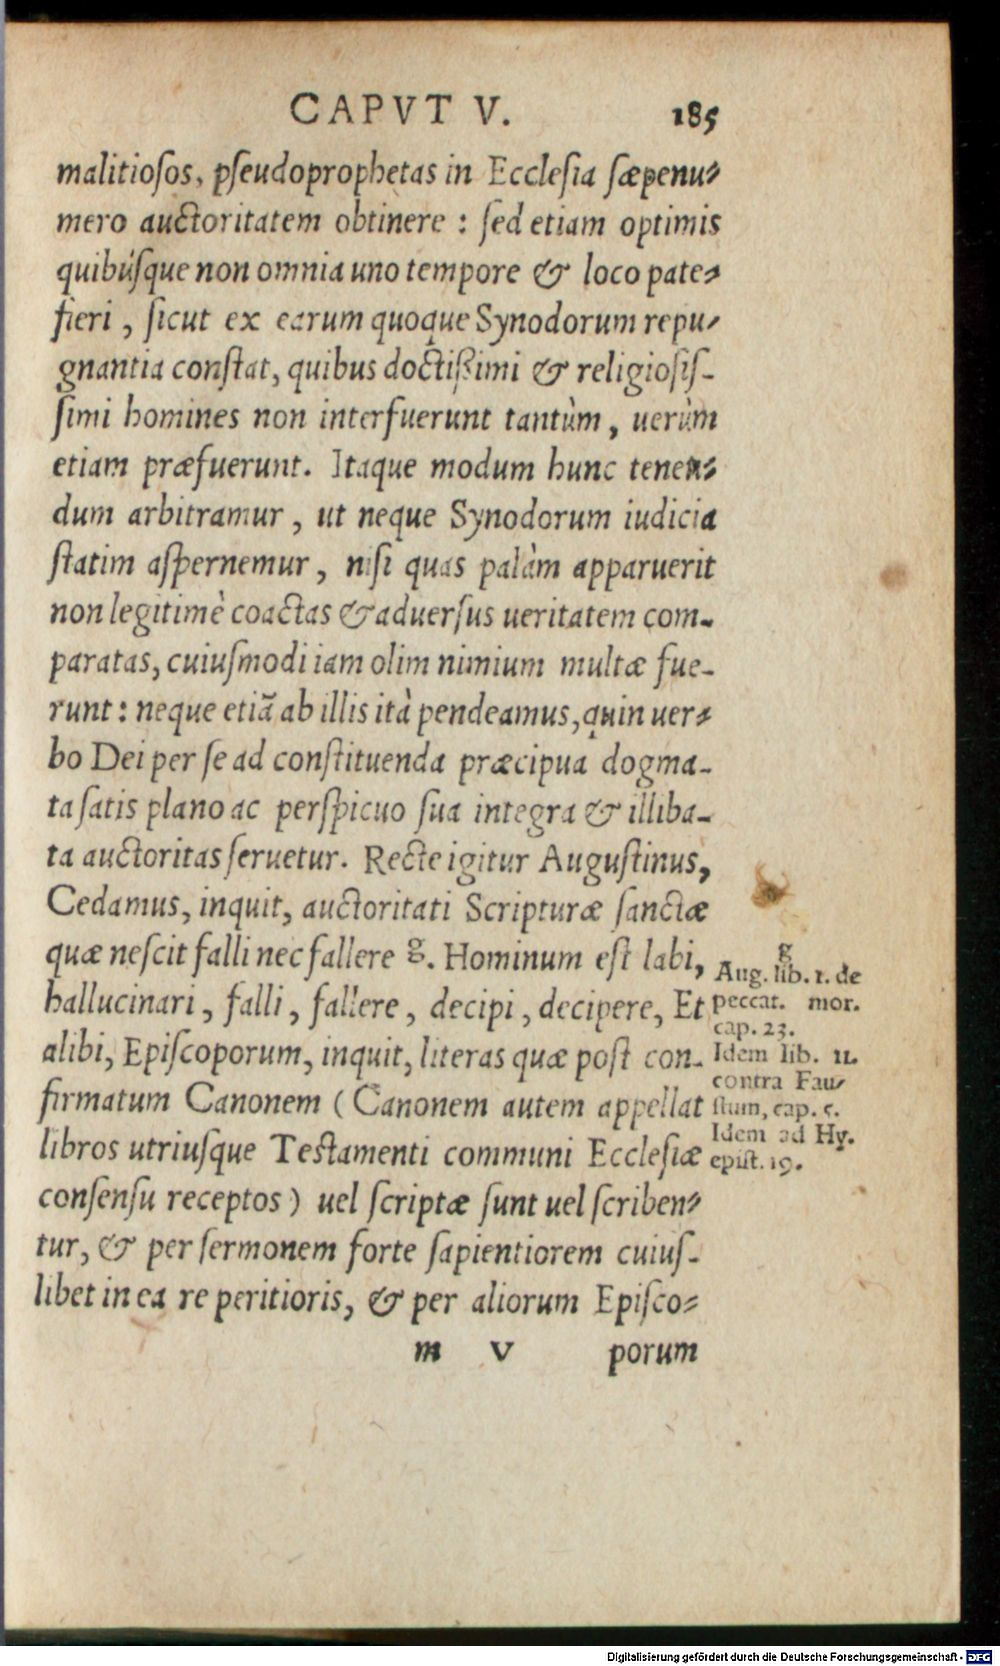 CAPVT V. 185
malitiosos, pseudoprophetas in Ecclesia sæpenu-
mero auctoritatem obtinere : sed etiam optimis
quibúsque non omnia uno tempore & loco pate-
fieri, sicut ex earum quoque Synodorum repu-
gnantia constat, quibus doctißimi & religiosis-
simi homines non interfuerunt tantùm, uerùm
etiam præfuerunt. Itaque modum hunc tenen-
dum arbitramur, ut neque Synodorum iudicia
statim aspernemur, nisi quas palàm apparuerit
non legitimè coactas & aduersus ueritatem com-
paratas, cuiusmodi iam olim nimium multæ fue-
runt: neque etiã ab illis ità pendeamus, quin uer-
bo Dei per se ad constituenda præcipua dogma-
ta satis plano ac perspicuo sua integra & illiba-
ta auctoritas seruetur. Recte igitur Augustinus,
Cedamus, inquit, auctoritati Scripturæ sanctæ
quæ nescit falli nec fallere g. Hominum est labi,
hallucinari, falli, fallere, decipi, decipere, Et
alibi, Episcoporum, inquit, literas quæ post con-
firmatum Canonem (Canonem autem appellat
libros utriusque Testamenti communi Ecclesiæ
consensu receptos) uel scriptæ sunt uel scriben-
tur, & per sermonem forte sapientiorem cuius-
libet in ea re peritioris, & per aliorum Episco-
m v porum
g
Aug. lib. 1. de
peccat. mor.
cap. 23.
Idem lib. 11.
contra Fau-
stum, cap. 5.
Idem ad Hy.
epist. 19.
Digitalisierung gefördert durch die Deutsche Forschungsgemeinschaft - DFG